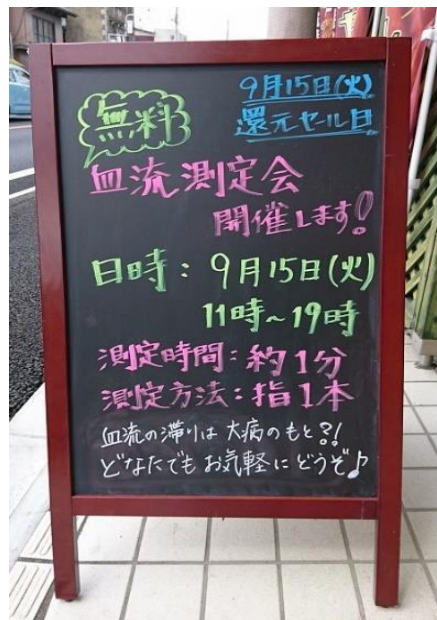 9月15日(火)
還元セール日
無料
血流測定会
開催します!
日時：9月15日(火)
11時～19時
測定時間：約1分
測定方法：指1本
血流の滞りは大病のもと?!
どなたでもお気軽にどうぞ♪